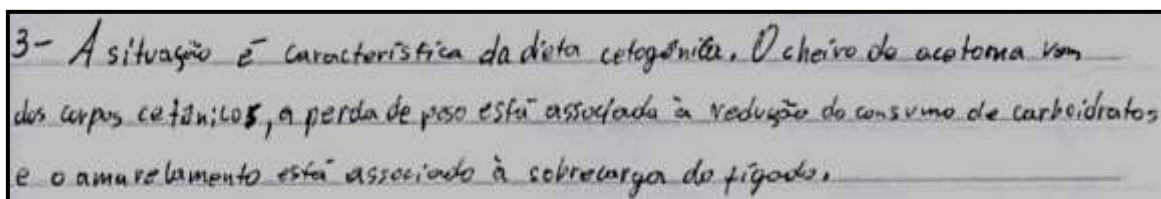 3- A situação é característica da dieta cetogênica. O cheiro de acetona vem
dos corpos cetônicos, a perda de peso está associada à redução do consumo de carboidratos
e o amarelamento está associado à sobrecarga do fígado.